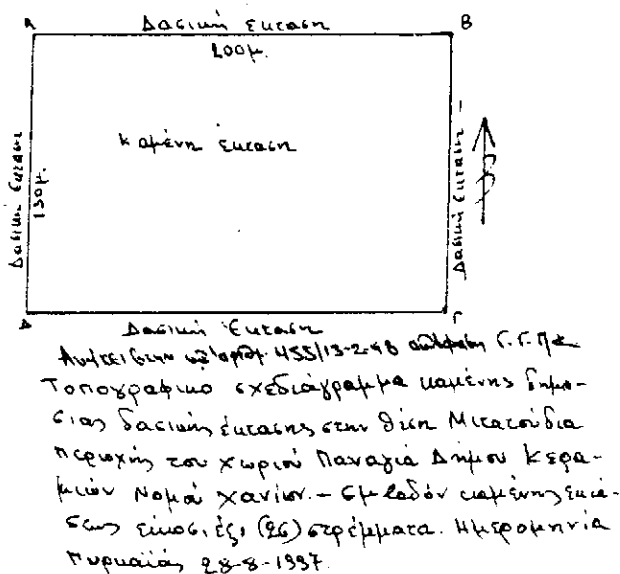 Α Δασική έκταση Β
200μ.
Καμένη έκταση
Δασική έκταση
130μ.
Δασική έκταση -
Β
Δ Δασική Έκταση Γ
Ανήκει στην υπ' αριθμ. 455/13-2-98 απόφαση Γ.Γ.Π.Κ.
Τοπογραφικό σχεδιάγραμμα καμένης δημο-
σιας δασικής έκτασης στην θέση Μιτατούδια
περιοχής του χωριού Παναγιά Δήμου Κερα-
μιών Νομού Χανίων. - Εμβαδόν καμένης εκτά-
σεως είκοσι έξι (26) στρέμματα. Ημερομηνία
πυρκαϊάς 28-8-1997.